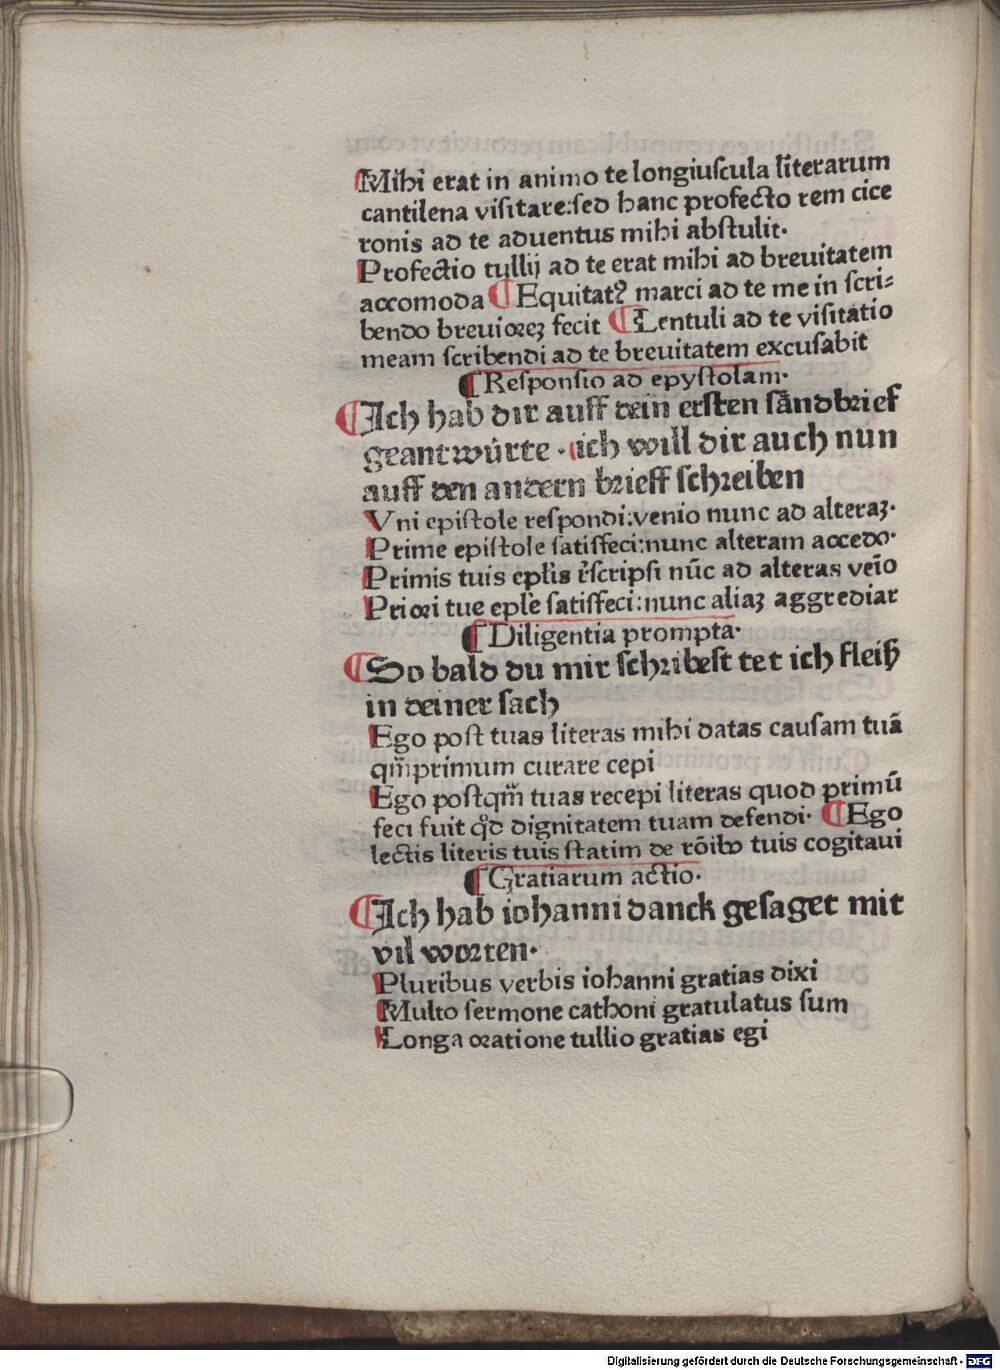 Mihi erat in animo te longiuscula lr̃erarum
cantilena visitare:sed hanc profecto rem cice
ronis ad te aduentus mihi abstulit·
Profectio tullij ad te erat mihi ad breuitatem
accomoda ¶ Equitatꝰ marci ad te me in scri⸗
bendo breuioreꝫ fecit ¶ Lentuli ad te visitatio
meam scribendi ad te breuitatem excusabit
¶ Responsio ad epystolam·
¶ Ich hab dir auff dein ersten sãndbrief
geantwúrte · ich will dir auch nun
auff den andern brieff schreiben
Vni epistole respondi:venio nunc ad alteraꝫ·
Prime epistole satisfeci:nunc alteram accedo·
Primis tuis epl̃is r̃scripsi nũc ad alteras veĩo
Priori tue epl̃e satisfeci:nunc aliaꝫ aggrediar
¶ Diligentia prompta·
¶ So bald du mir schribest tet ich fleiß
in deiner sach
Ego post tuas literas mihi datas causam tuã
qm̃primum curare cepi
Ego postqm̃ tuas recepi literas quod primũ
feci fuit qd̃ dignitatem tuam defendi· ¶ Ego
lectis literis tuis statim de rõibꝰ tuis cogitaui
¶ Gratiarum actio·
¶ Ich hab iohanni danck gesaget mit
vil worten·
Pluribus verbis iohanni gratias dixi
Multo sermone cathoni gratulatus sum
Longa oratione tullio gratias egi
Digitalisierung gefördert durch die Deutsche Forschungsgemeinschaft - DFG